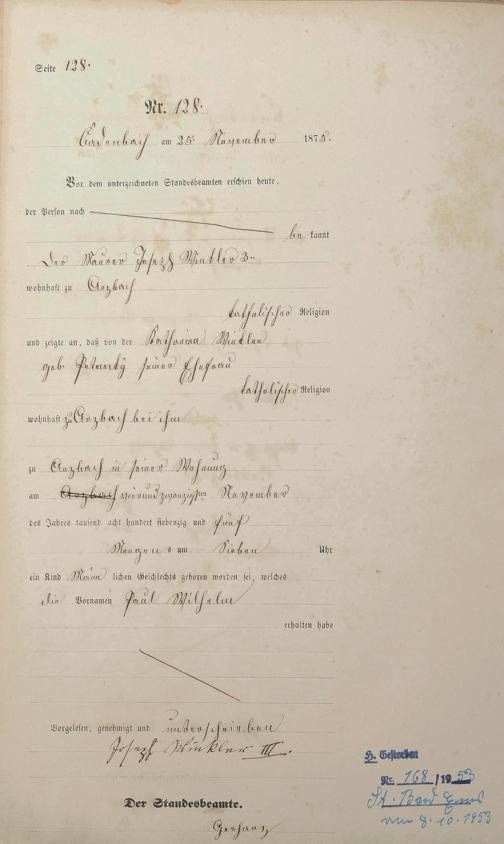 Seite 128.
Nr. 128.
Cadenbach am 25 November 1875.
Vor dem unterzeichneten Standesbeamten erschien heute,
der Person nach
be kannt
der Maurer Joseph Winkler 3ⁿ
wohnhaft zu Arzbach
katholischer Religion
und zeigte an, daß von der Katharina Winkler
geb. seiner Ehefrau
katholischer Religion
wohnhaft zu Arzbach bei ihm
zu Arzbach in seiner Wohnung
am Arzbach vierundzwanzigsten November
des Jahres tausend acht hundert siebenzig und fünf
Morgens um Sieben Uhr
ein Kind Männ lichen Geschlechts geboren worden sei, welches
die Vornamen Paul Wilhelm
erhalten habe
Vorgelesen, genehmigt und unterschrieben
Joseph Winkler III.
Der Standesbeamte.
H. Gestorben
Nr. 168/1953
St. Bad Ems
vom 8.10.1953